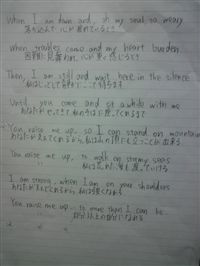 When I am down and, oh my soul, so weary
落ち込んで 心が疲れているとき
When troubles come and my heart burden,
困難に見舞われ、心が重く感じるとき
Then, I am still and wait here in the silence
私はじっとして静かに 待ちます
Until, you come and sit awhile with me
あなたがやってきて 私のそばに座ってくれるまで
You raise me up, so I can stand on mountain
あなたが支えてくれるから、私は山の頂にも立つことが出来る
You raise me up, to walk on stormy seas
私は嵐の海も渡って行ける
I am strong, when I am on your shoulders
あなたが支えてくれるから 私は強くなれる
You raise me up... to more than I can be
自分以上の自分になれる